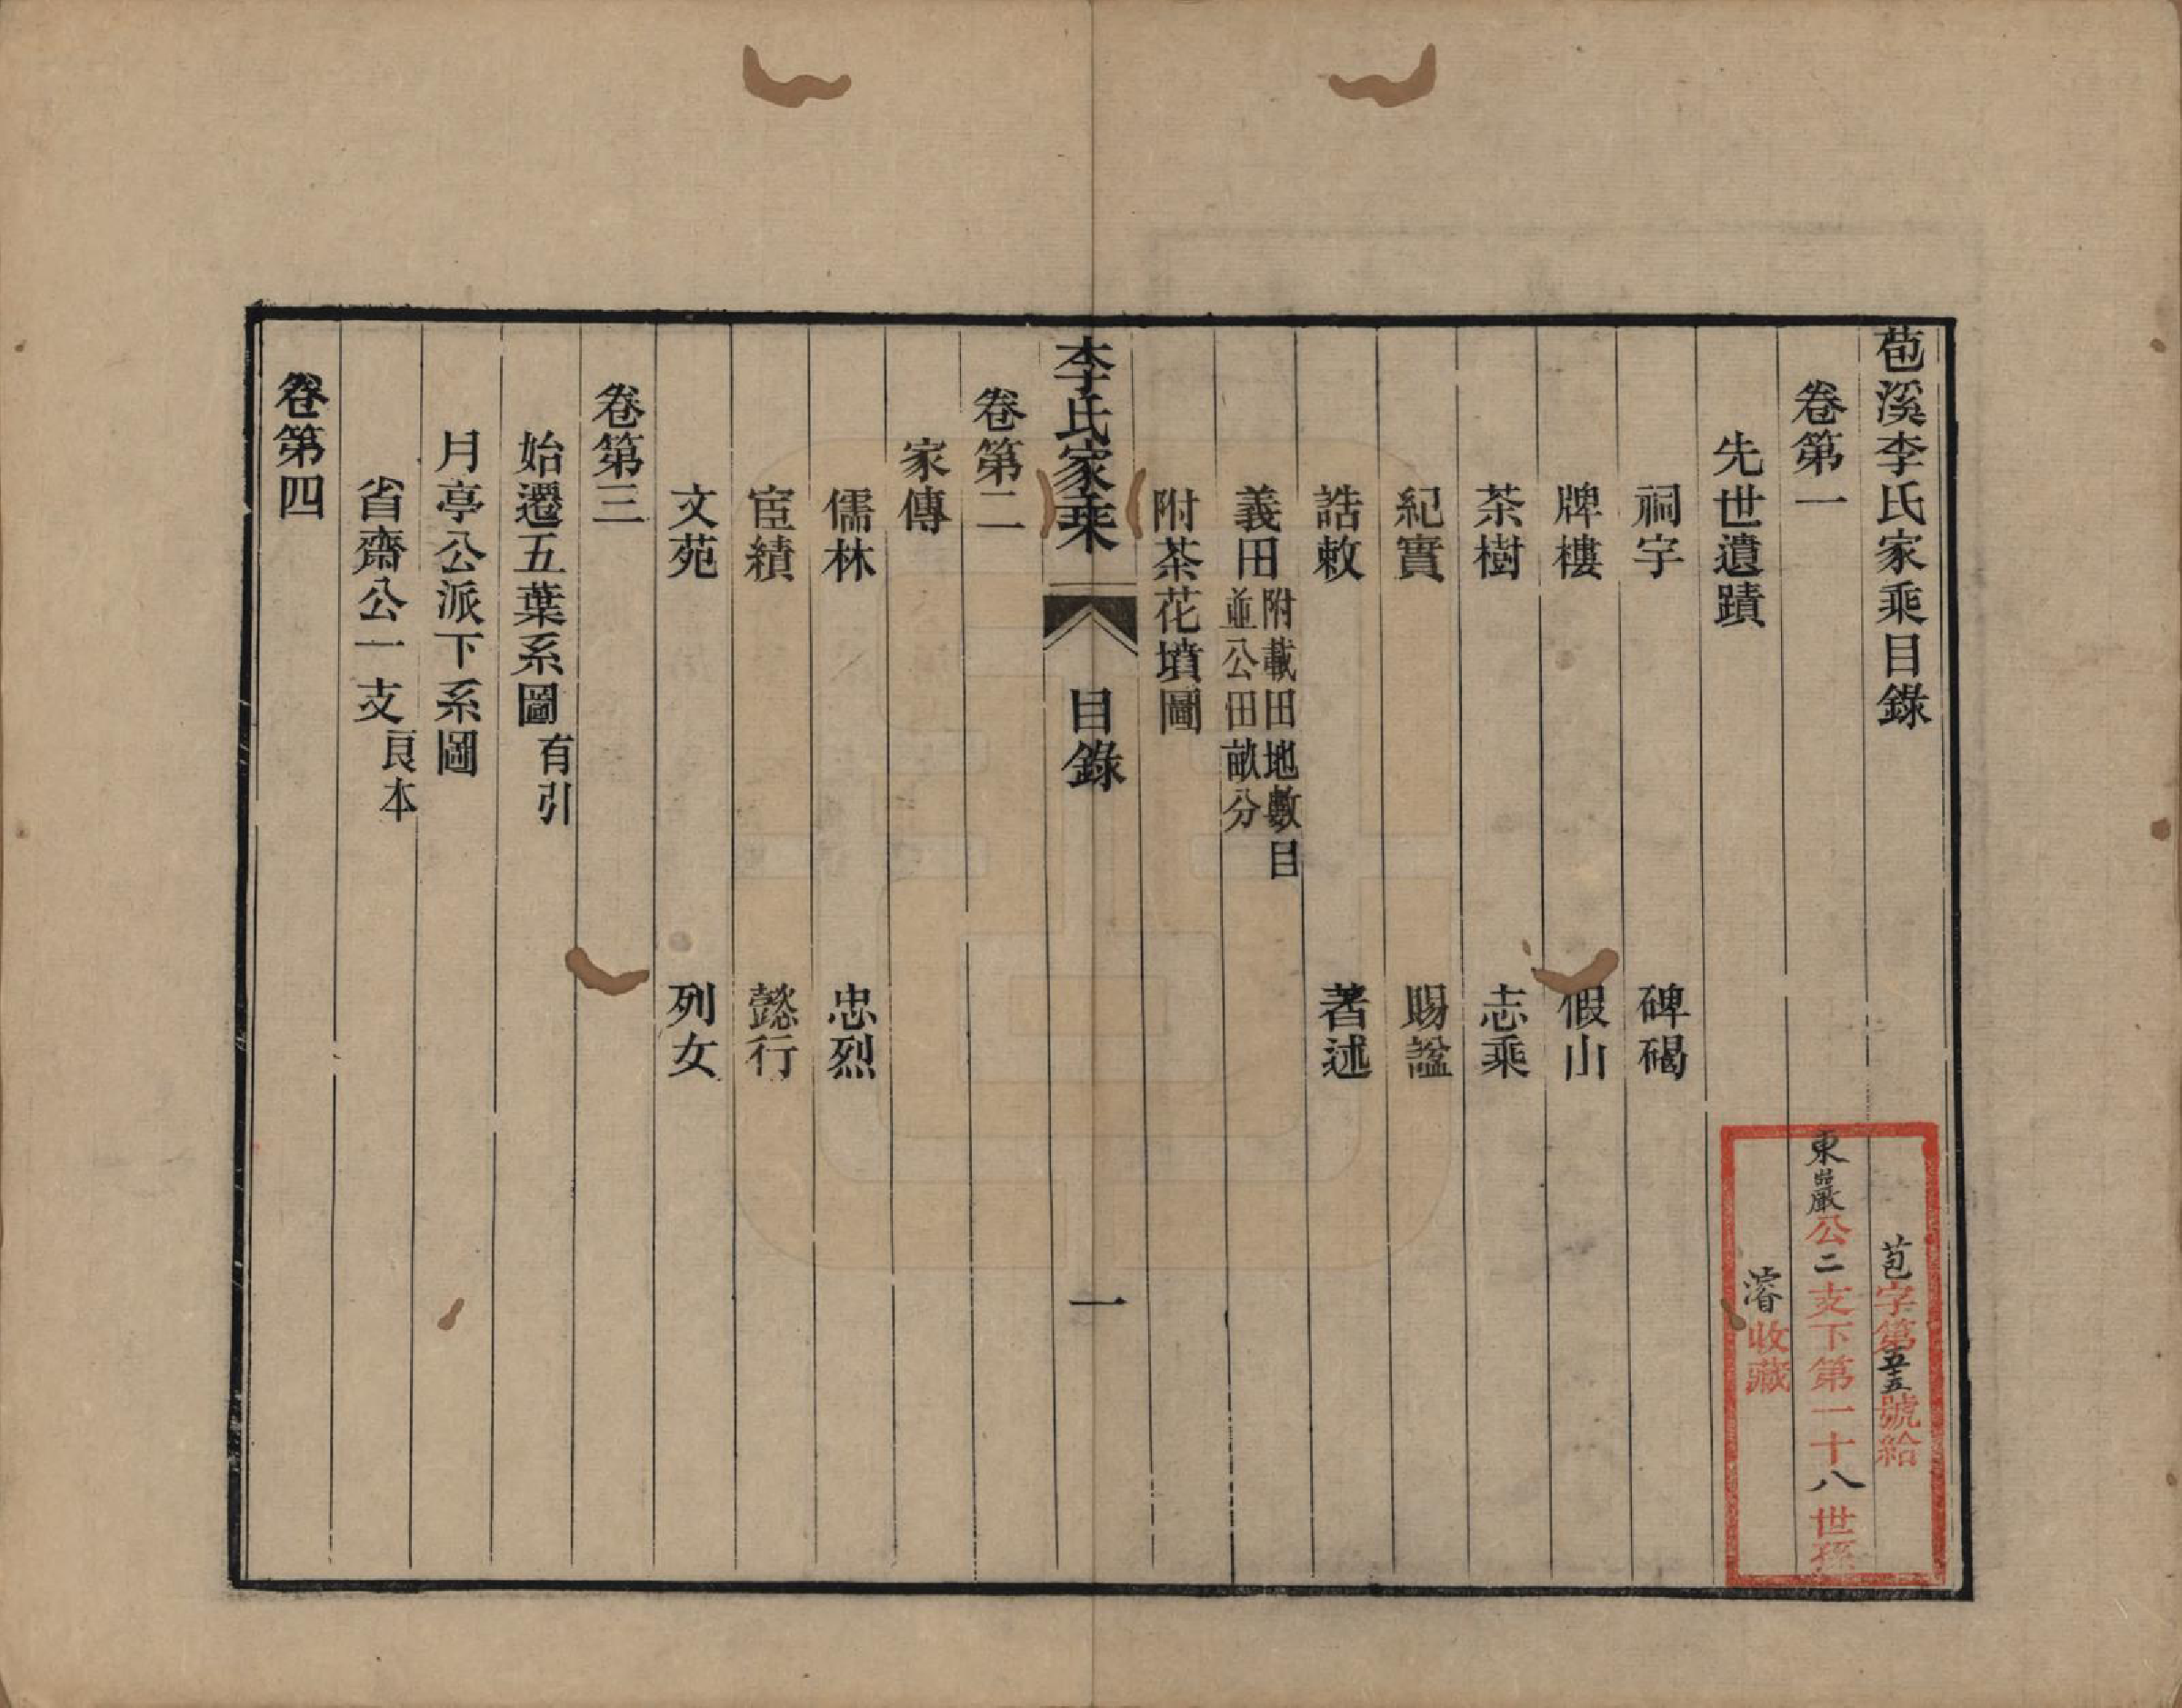 苞溪李氏家乘目錄
卷第一
先世遺蹟
祠宇　碑碣
牌樓　假山
茶樹　志乘
紀實　賜諡
誥敕　著述
義田附載田地數目並公田畝分
附茶花墳圖
李氏家乘　目錄　一
卷第二
家傳
儒林　忠烈
宦績　懿行
文苑　列女
卷第三
始遷五葉系圖有引
月亭公派下系圖
省齋公一支艮本
卷第四
苞字第五十五號給
東巖公二支下第一十八世孫
濬收藏